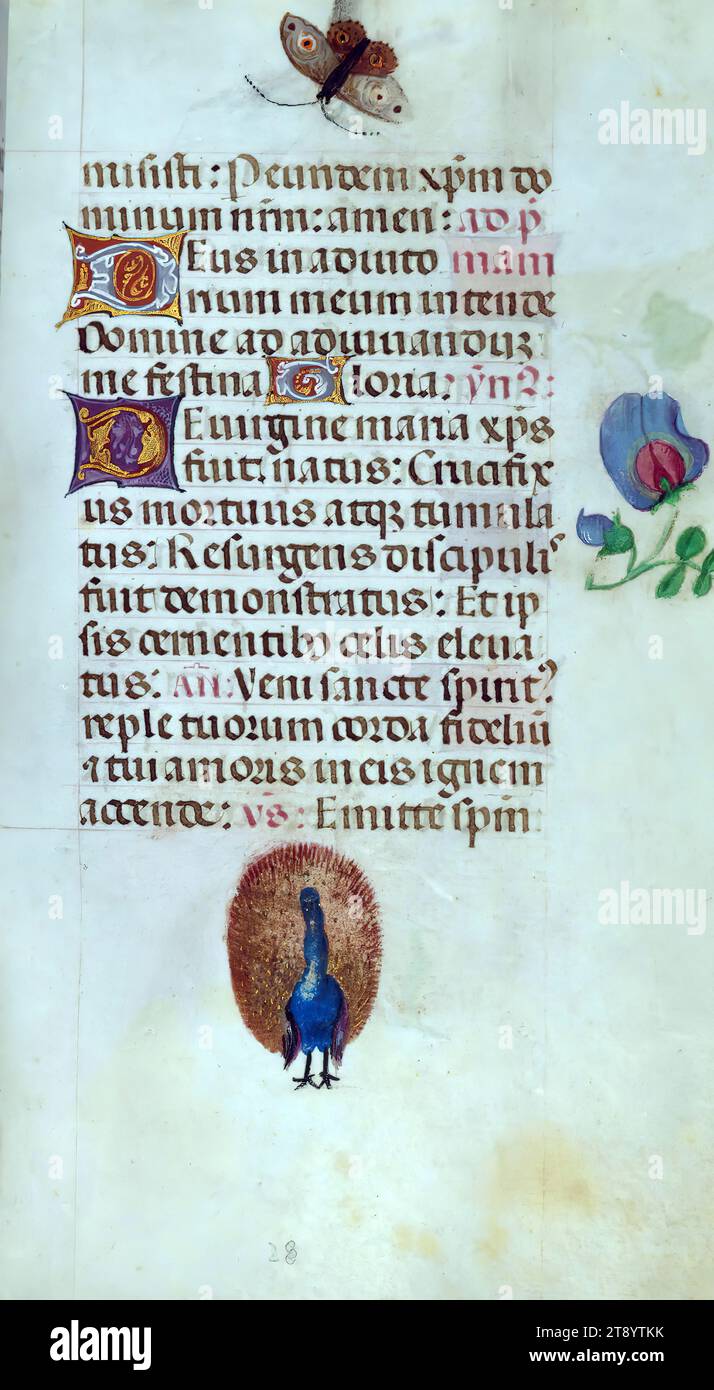 misisti: Peundem xp̄m do
minum nr̄m: amen: ad p̄
Deus in adiuto mam
rium meum intende
Domine ad adiuuandūꝫ
me festina Gloria: ym̄2:
De uirgine maria xp̄s
fuit natus: Crucifix
us mortuus atqꝫ tumula
tus: Resurgens discipulis
fuit demonstratus: Et ip
sis cernentibꝰ celis eleua
tus: An̄: Veni sancte spirit?
reple tuorum corda fideliū
⁊ tui amoris in eis ignem
accende: vs̄: Emitte spm̄
28
alamy
alamy
alamy
Image ID: 2T8YTKK
www.alamy.com